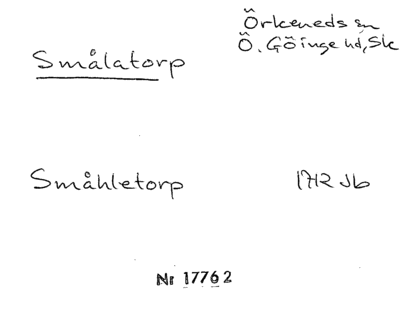 Örkeneds sn
Ö. Göinge hd, Sk
Smålatorp
Småhletorp 1712 Jb
Nr 17762